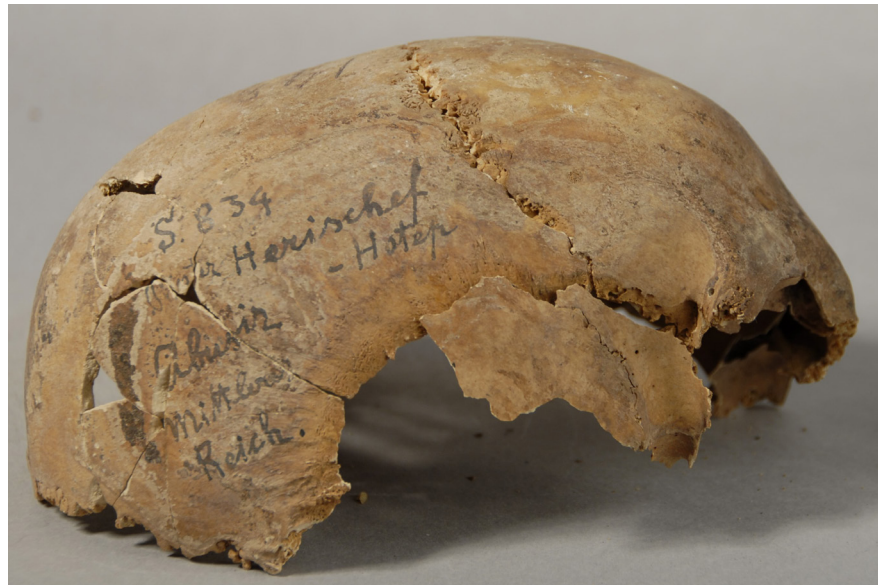 S. 834
der Herischef
- Hotep
Abusir
Mittleres
Reich.